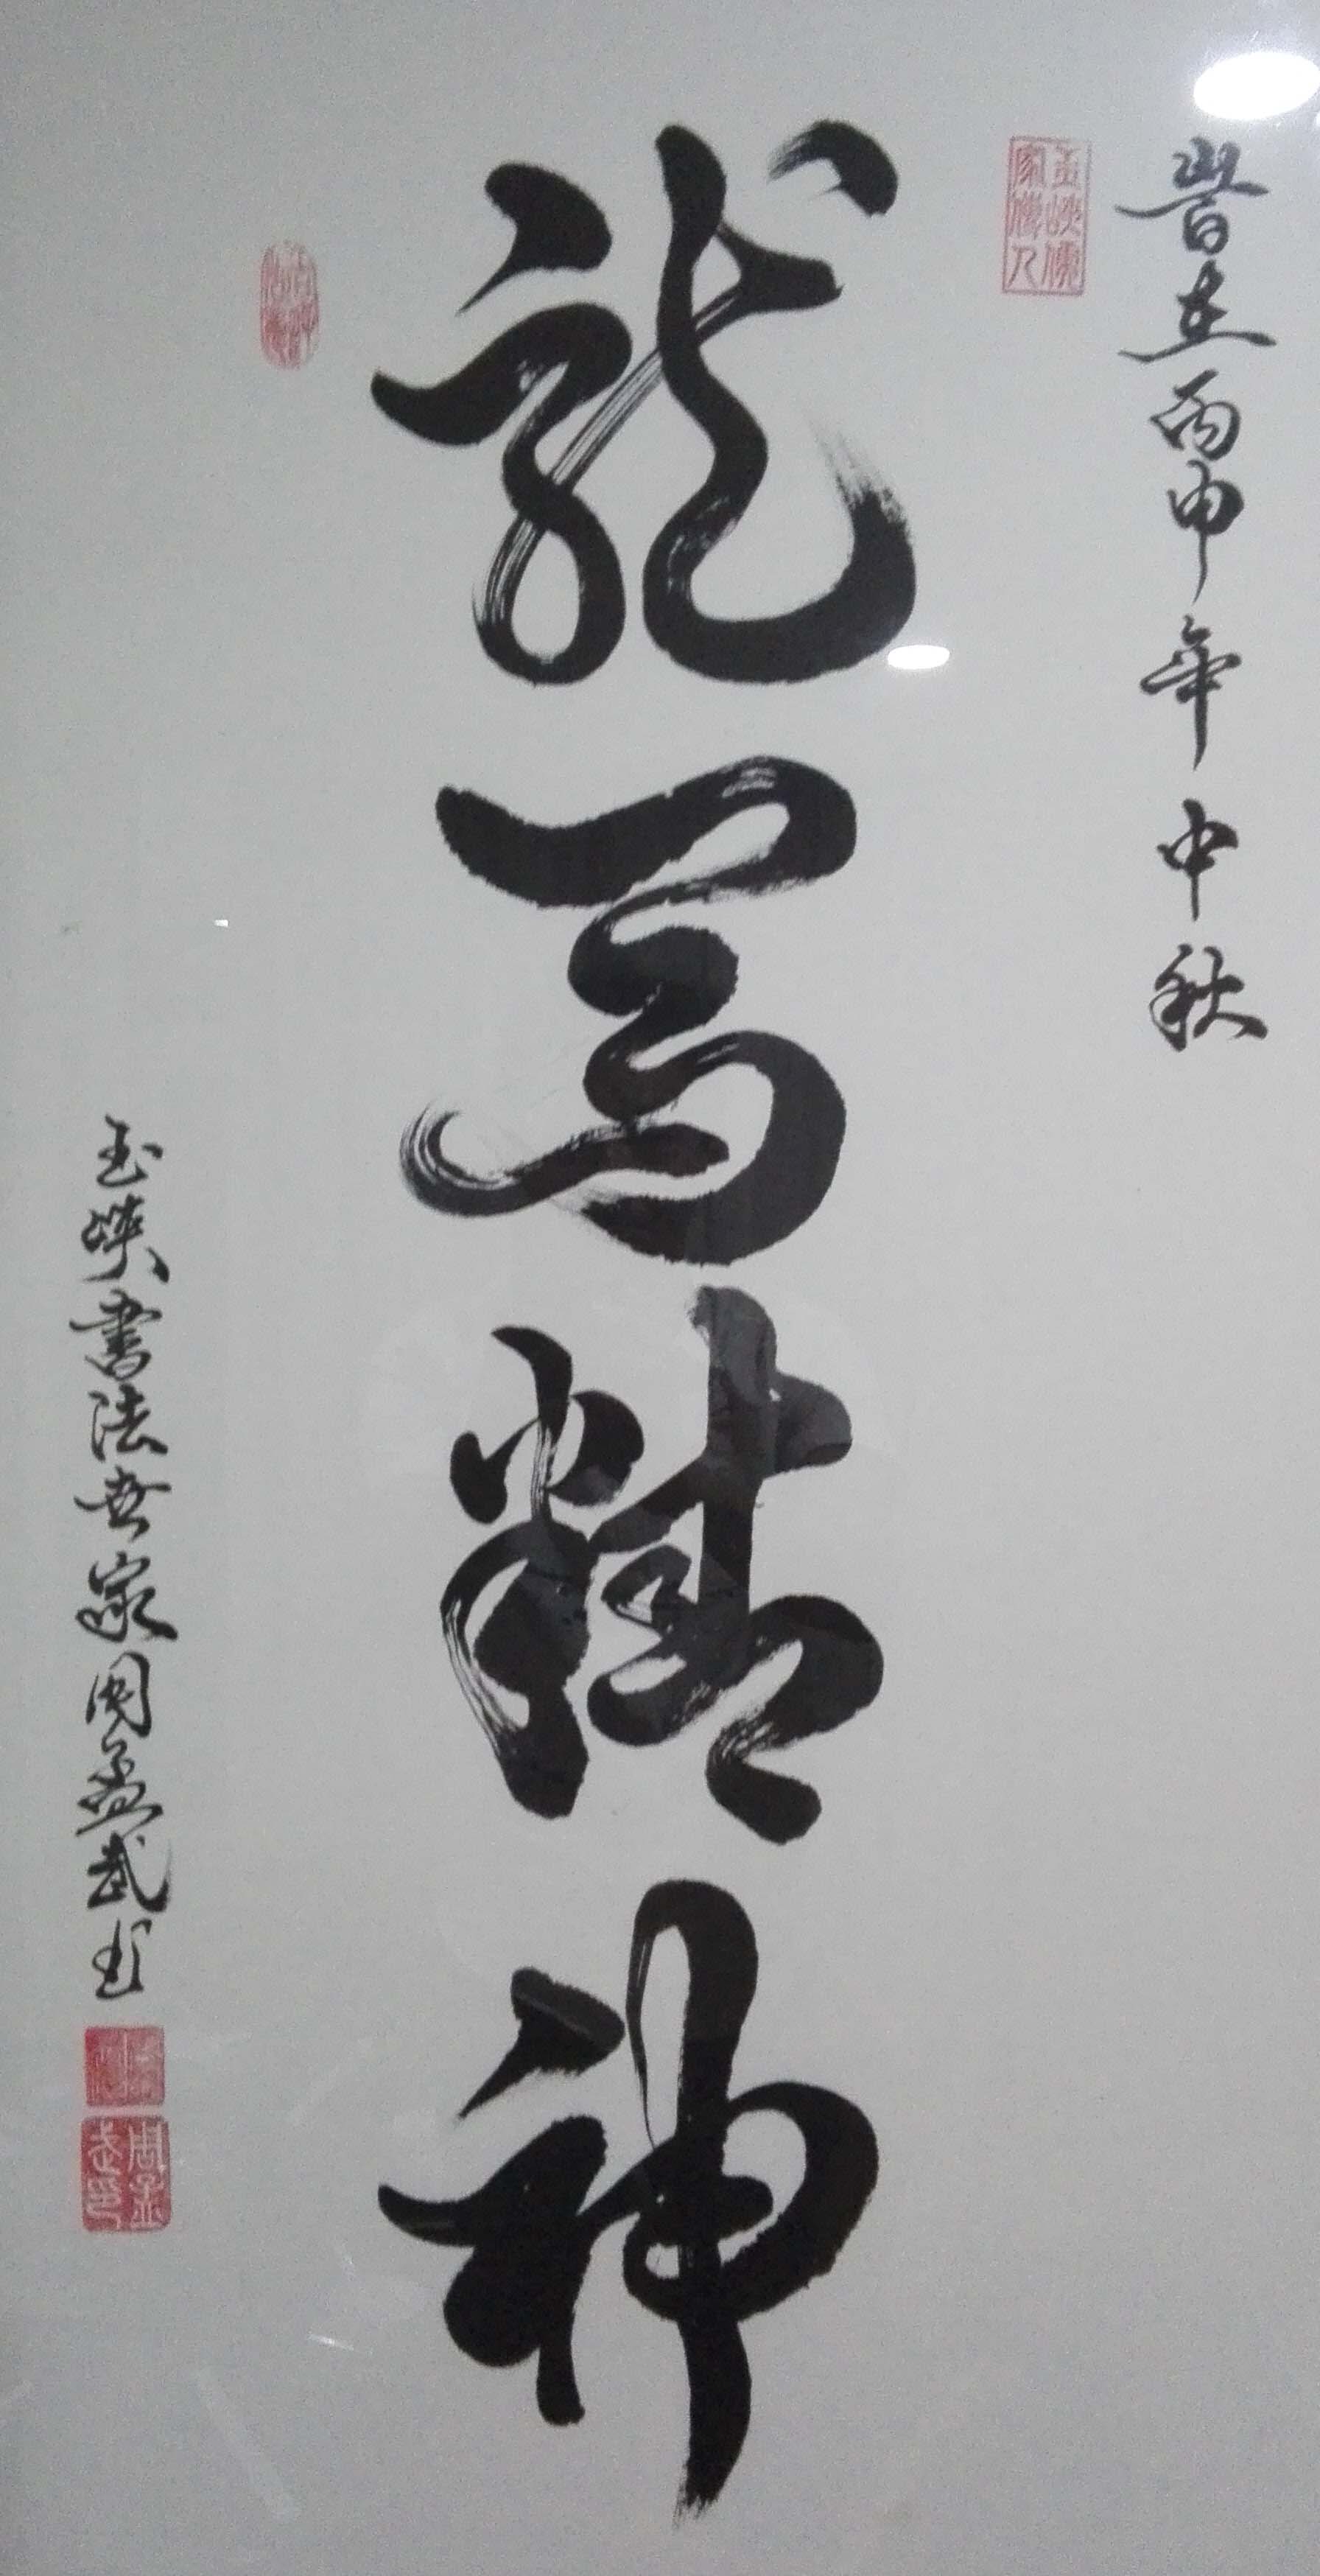 岁在丙申年中秋
龍馬精神
玉峡書法世家周孟武书